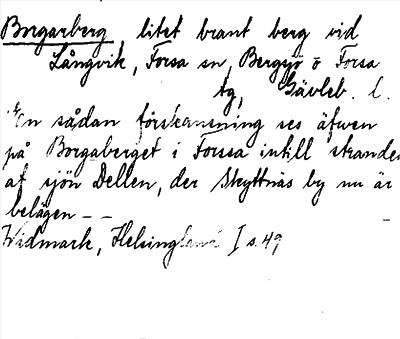 Borgarberg litet brant berg vid
Långvik, Forsa sn, Bergsjö o Forsa
tg, Gävleb. l.
"En sådan förskansning ses äfwen
på Borgaberget i Forssa intill strandes
af sjön Dellen, der Skyttnäs by nu är
belägen - -
Widmark, Helsingland I s. 49